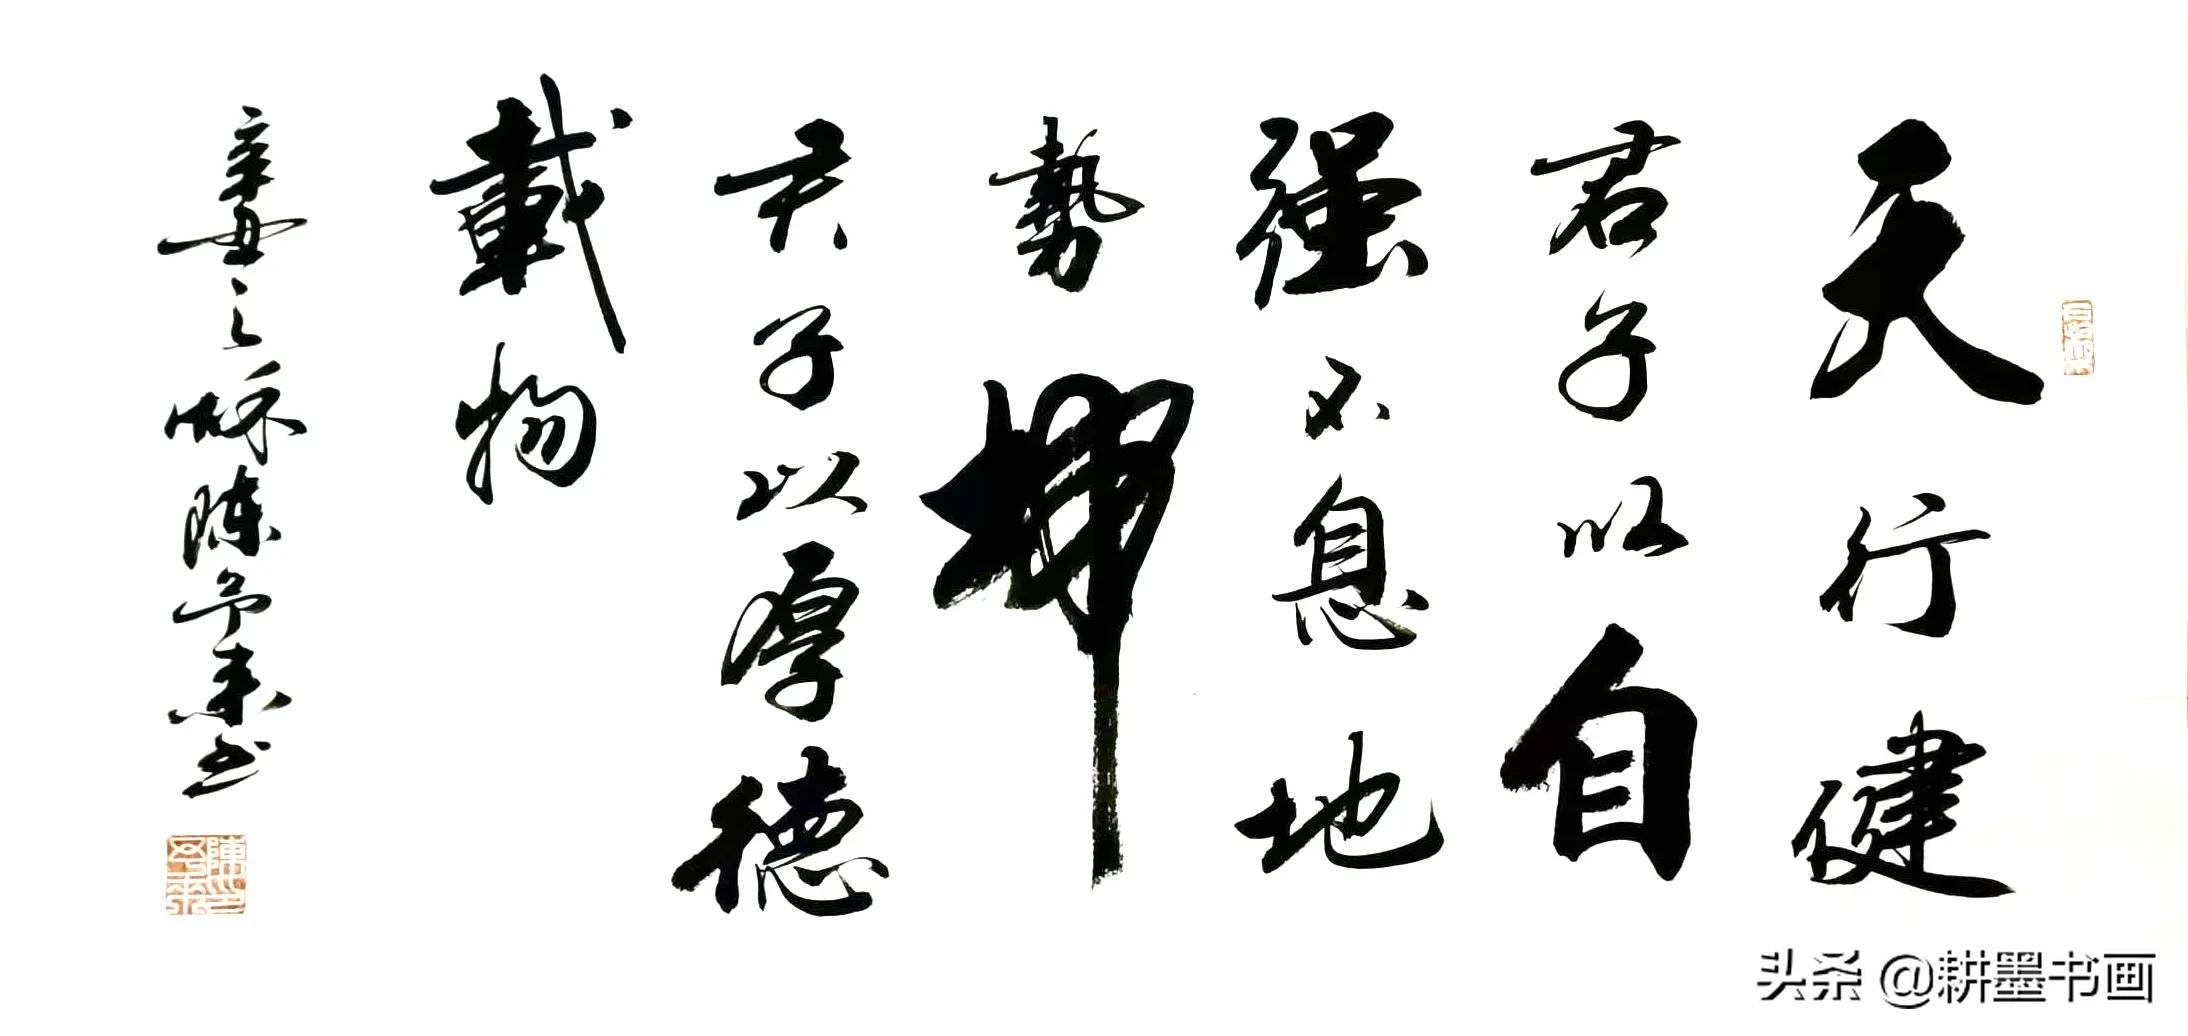 天行健
君子以自
强不息地
勢坤
君子以厚德
載物
辛丑之秋陈予来书
头条 @耕墨书画